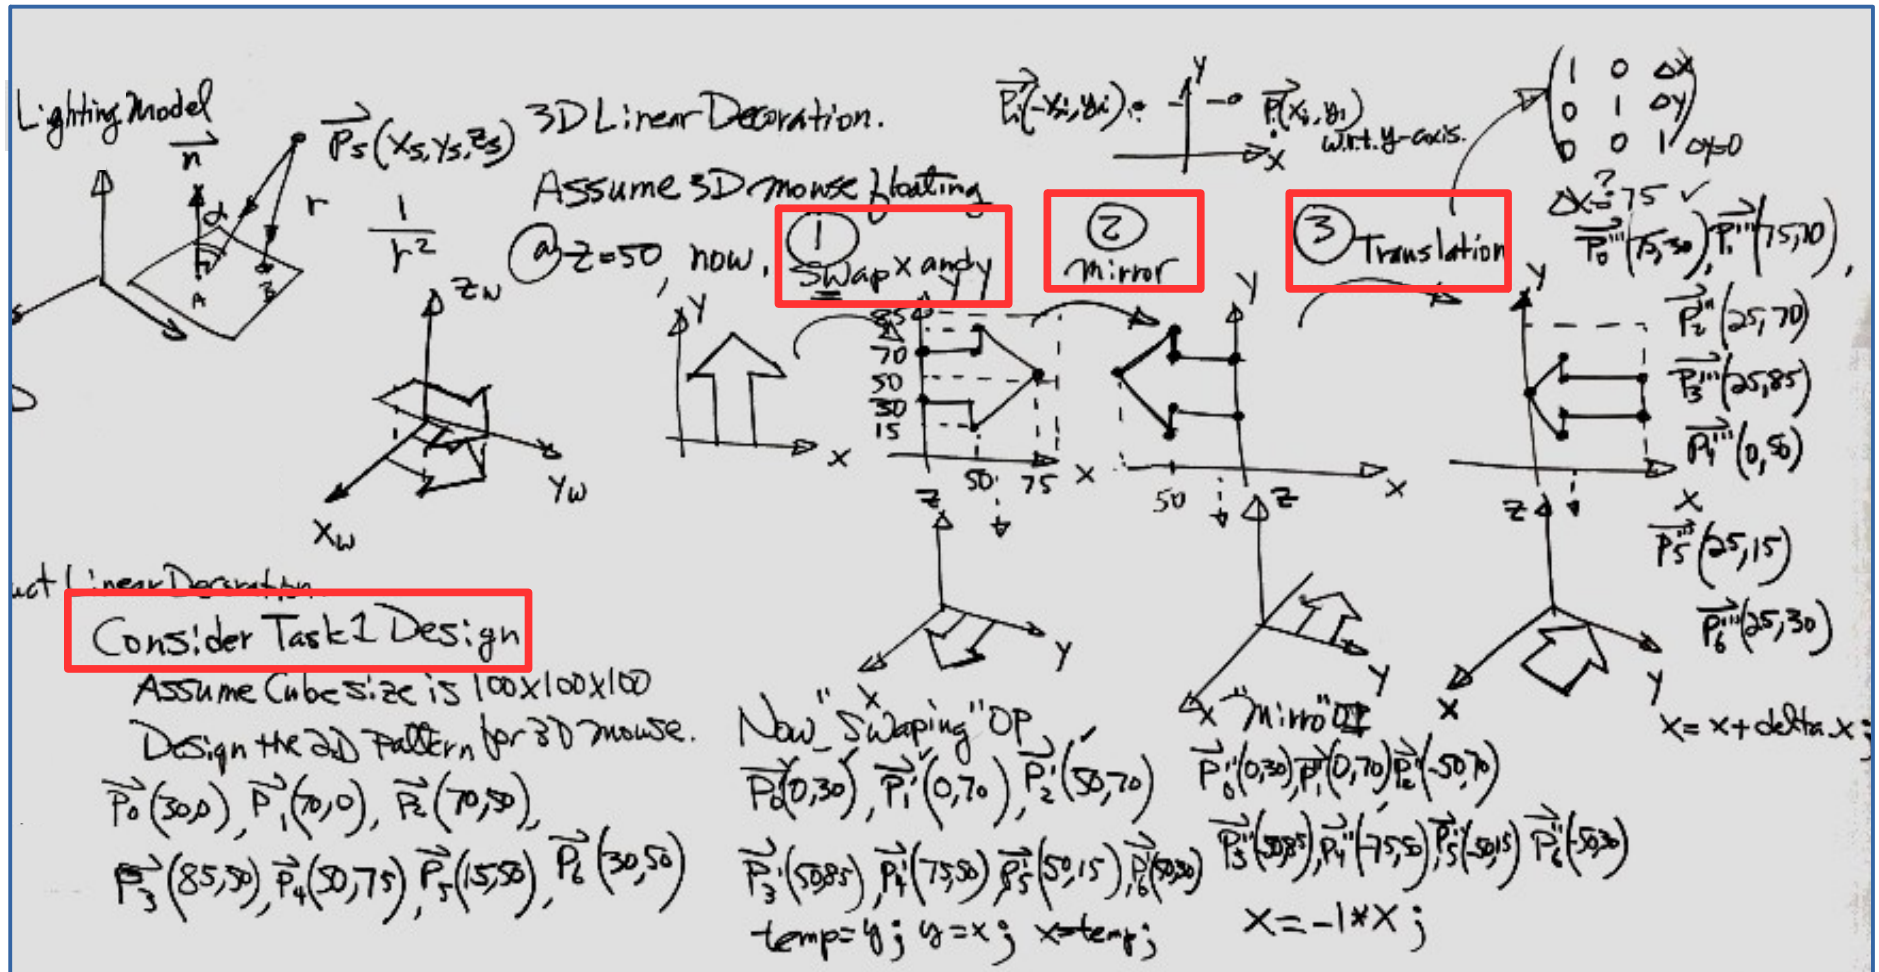 Lighting Model
n
P5(x5,y5,z5)
α
r
A
B
1
r²
3D Linear Decoration.
Assume 3D mouse floating
@ z=50, now,
① Swap x and y
② mirror
③ Translation
Pi(-xi,yi)
Y
X
P(xi,yi)
w.r.t. y-axis.
1 0 ΔX
0 1 ΔY
0 0 1 ΔY=0
ΔX=75 ✓
?
P0'''(75,30), P1'''(75,70),
P2'''(25,70)
P3'''(25,85)
P4'''(0,50)
P5'''(25,15)
P6'''(25,30)
x = x + delta x;
Zw
Yw
Xw
Y
X
Y
85
70
50
30
15
50 75 X
Y
50
X
Y
X
Z
Y
X
Z
Y
X
Z
Y
X
uct Linear Decoration
Consider Task1 Design
Assume Cube size is 100x100x100
Design the 2D Pattern for 3D mouse.
P0(30,0), P1(70,0), P2(70,50),
P3(85,50), P4(50,75), P5(15,50), P6(30,50)
Now "Swaping" OP
P0'(0,30), P1'(0,70), P2'(50,70)
P3'(50,85), P4'(75,50) P5'(50,15), P6'(50,30)
temp=y; y=x; x=temp;
"Mirro" OP
P0''(0,30), P1''(0,70) P2''(-50,70)
P3''(-50,85), P4''(-75,50), P5''(-50,15) P6''(-50,30)
X=-1*X;